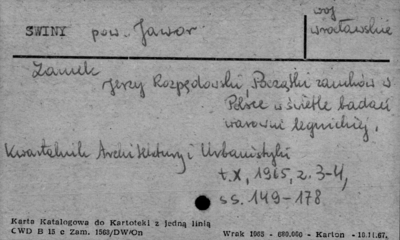 SWINY pow. Jawor
woj
wrocławskie
Zamek
Jerzy Rozpędowski, Początki zamków w
Polsce w świetle badań
warowni legnickiej,
Kwartalnik Architektury i Urbanistyki
t.X, 1965, z. 3-4,
ss. 149-178
Karta Katalogowa do Kartoteki z jedną linią
CWD B 15 c Zam. 1563/DW/On
Wrak 1965 - 680.000 - Karton - 10.11.67.